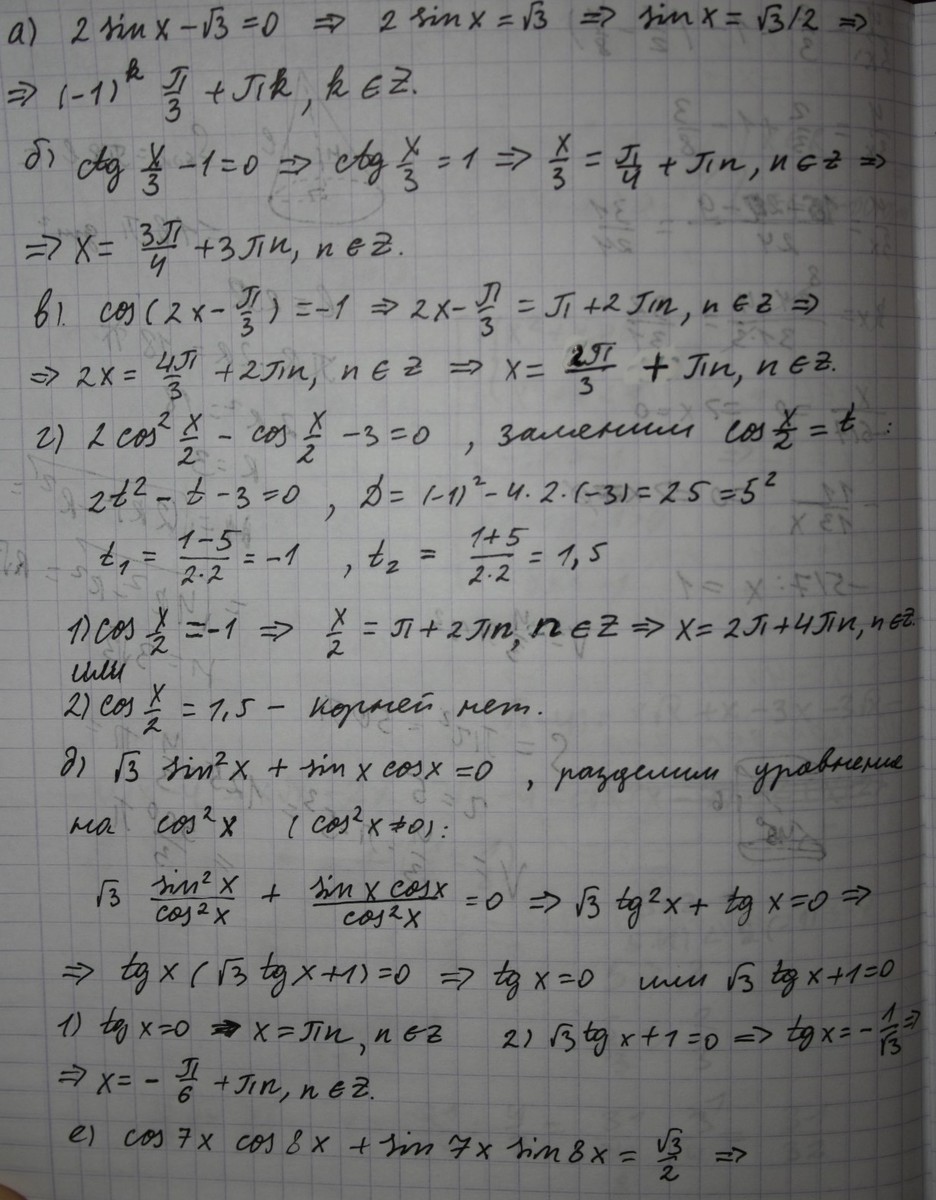 а) 2 sin x − √3 = 0 ⇒ 2 sin x = √3 ⇒ sin x = √3/2 ⇒
⇒ (−1)^k π/3 + πk, k ∈ Z.
б) ctg x/3 − 1 = 0 ⇒ ctg x/3 = 1 ⇒ x/3 = π/4 + πn, n ∈ Z ⇒
⇒ x = 3π/4 + 3πn, n ∈ Z.
в). cos(2x − π/3) = −1 ⇒ 2x − π/3 = π + 2πn, n ∈ Z ⇒
⇒ 2x = 4π/3 + 2πn, n ∈ Z ⇒ x = 2π/3 + πn, n ∈ Z.
г) 2 cos² x/2 − cos x/2 − 3 = 0 , заменим cos x/2 = t :
2t² − t − 3 = 0 , D = (−1)² − 4·2·(−3) = 25 = 5²
t₁ = (1−5)/(2·2) = −1 , t₂ = (1+5)/(2·2) = 1,5
1) cos x/2 = −1 ⇒ x/2 = π + 2πn, n ∈ Z ⇒ x = 2π + 4πn, n ∈ Z.
или
2) cos x/2 = 1,5 − корней нет.
д) √3 sin²x + sin x cos x = 0 , разделим уравнение
на cos²x (cos²x ≠ 0):
√3 sin²x/cos²x + sin x cos x/cos²x = 0 ⇒ √3 tg²x + tg x = 0 ⇒
⇒ tg x (√3 tg x + 1) = 0 ⇒ tg x = 0 или √3 tg x + 1 = 0
1) tg x = 0 ⇒ x = πn, n ∈ Z 2) √3 tg x + 1 = 0 ⇒ tg x = −1/√3 ⇒
⇒ x = −π/6 + πn, n ∈ Z.
е) cos 7x cos 8x + sin 7x sin 8x = √3/2 ⇒